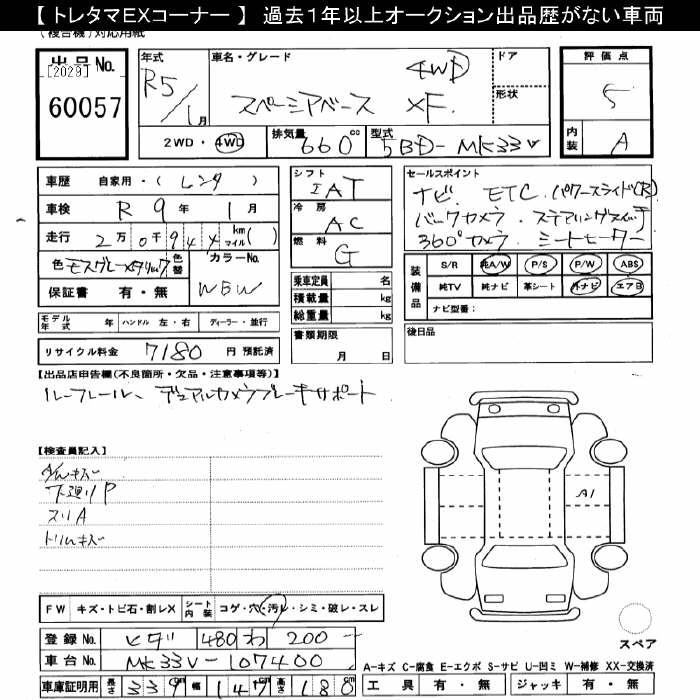 【 トレタマEXコーナー 】 過去1年以上オークション出品歴がない車両
(複合機)対応用紙
出品No.
[2029]
60057
年式
R5/1月
車名・グレード
スペーシアベース XF
4WD
ドア
形状
評価点
5
内装
A
2WD・4WD
排気量
660cc
型式
5BD-MK33V
車歴 自家用・(レンタ)
車検 R 9年 1月
走行 2万0千944 kmマイル( )
色 モスグレーメタリック 色替
カラーNo.
WBW
保証書 有・無
モデル年式 年 ハンドル 左・右 ディーラー・並行
リサイクル料金 7180 円 預託済
シフト
IAT
冷房
AC
燃料
G
乗車定員 名
積載量 kg
総重量 kg
書類期限
月 日
セールスポイント
ナビ. ETC. パワースライド(R)
バックカメラ. ステアリングスイッチ
360°カメラ. シートヒーター
装備品
S/R 純A/W P/S P/W ABS
純TV 純ナビ 革シート 外ナビ エアB
ナビ型番:
後日品
【出品店申告欄(不良箇所・欠品・注意事項等)】
ルーフレール、デュアルカメラブレーキサポート
【検査員記入】
下廻りP
スリA
トリムキズ
A1
FW キズ・トビ石・割レX
シート内装 コゲ・穴・汚レ・シミ・破レ・スレ
スペア
登録No. 480わ 200
車台No. MK33V-107400
車庫証明用 長さ339cm 幅147cm 高さ180cm
A-キズ C-腐食 E-エクボ S-サビ U-凹ミ W-補修 XX-交換済
工具 有・無 ジャッキ 有・無